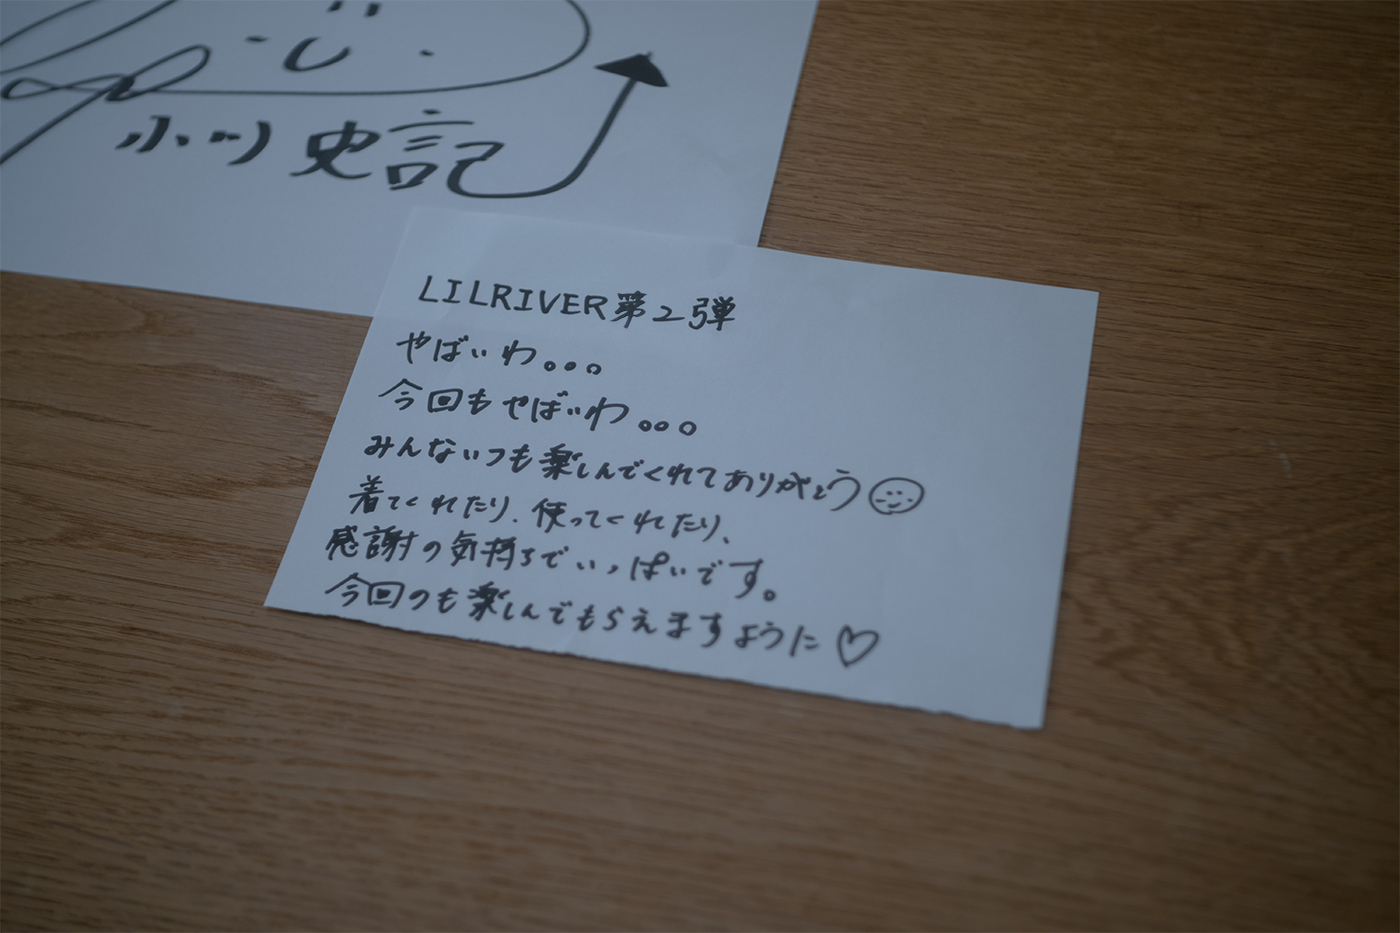 小川史記
LILRIVER第2弾
やばいわ。。。
今回もやばいわ。。。
みんないつも楽しんでくれてありがとう
着てくれたり、使ってくれたり、
感謝の気持ちでいっぱいです。
今回のも楽しんでもらえますように♡